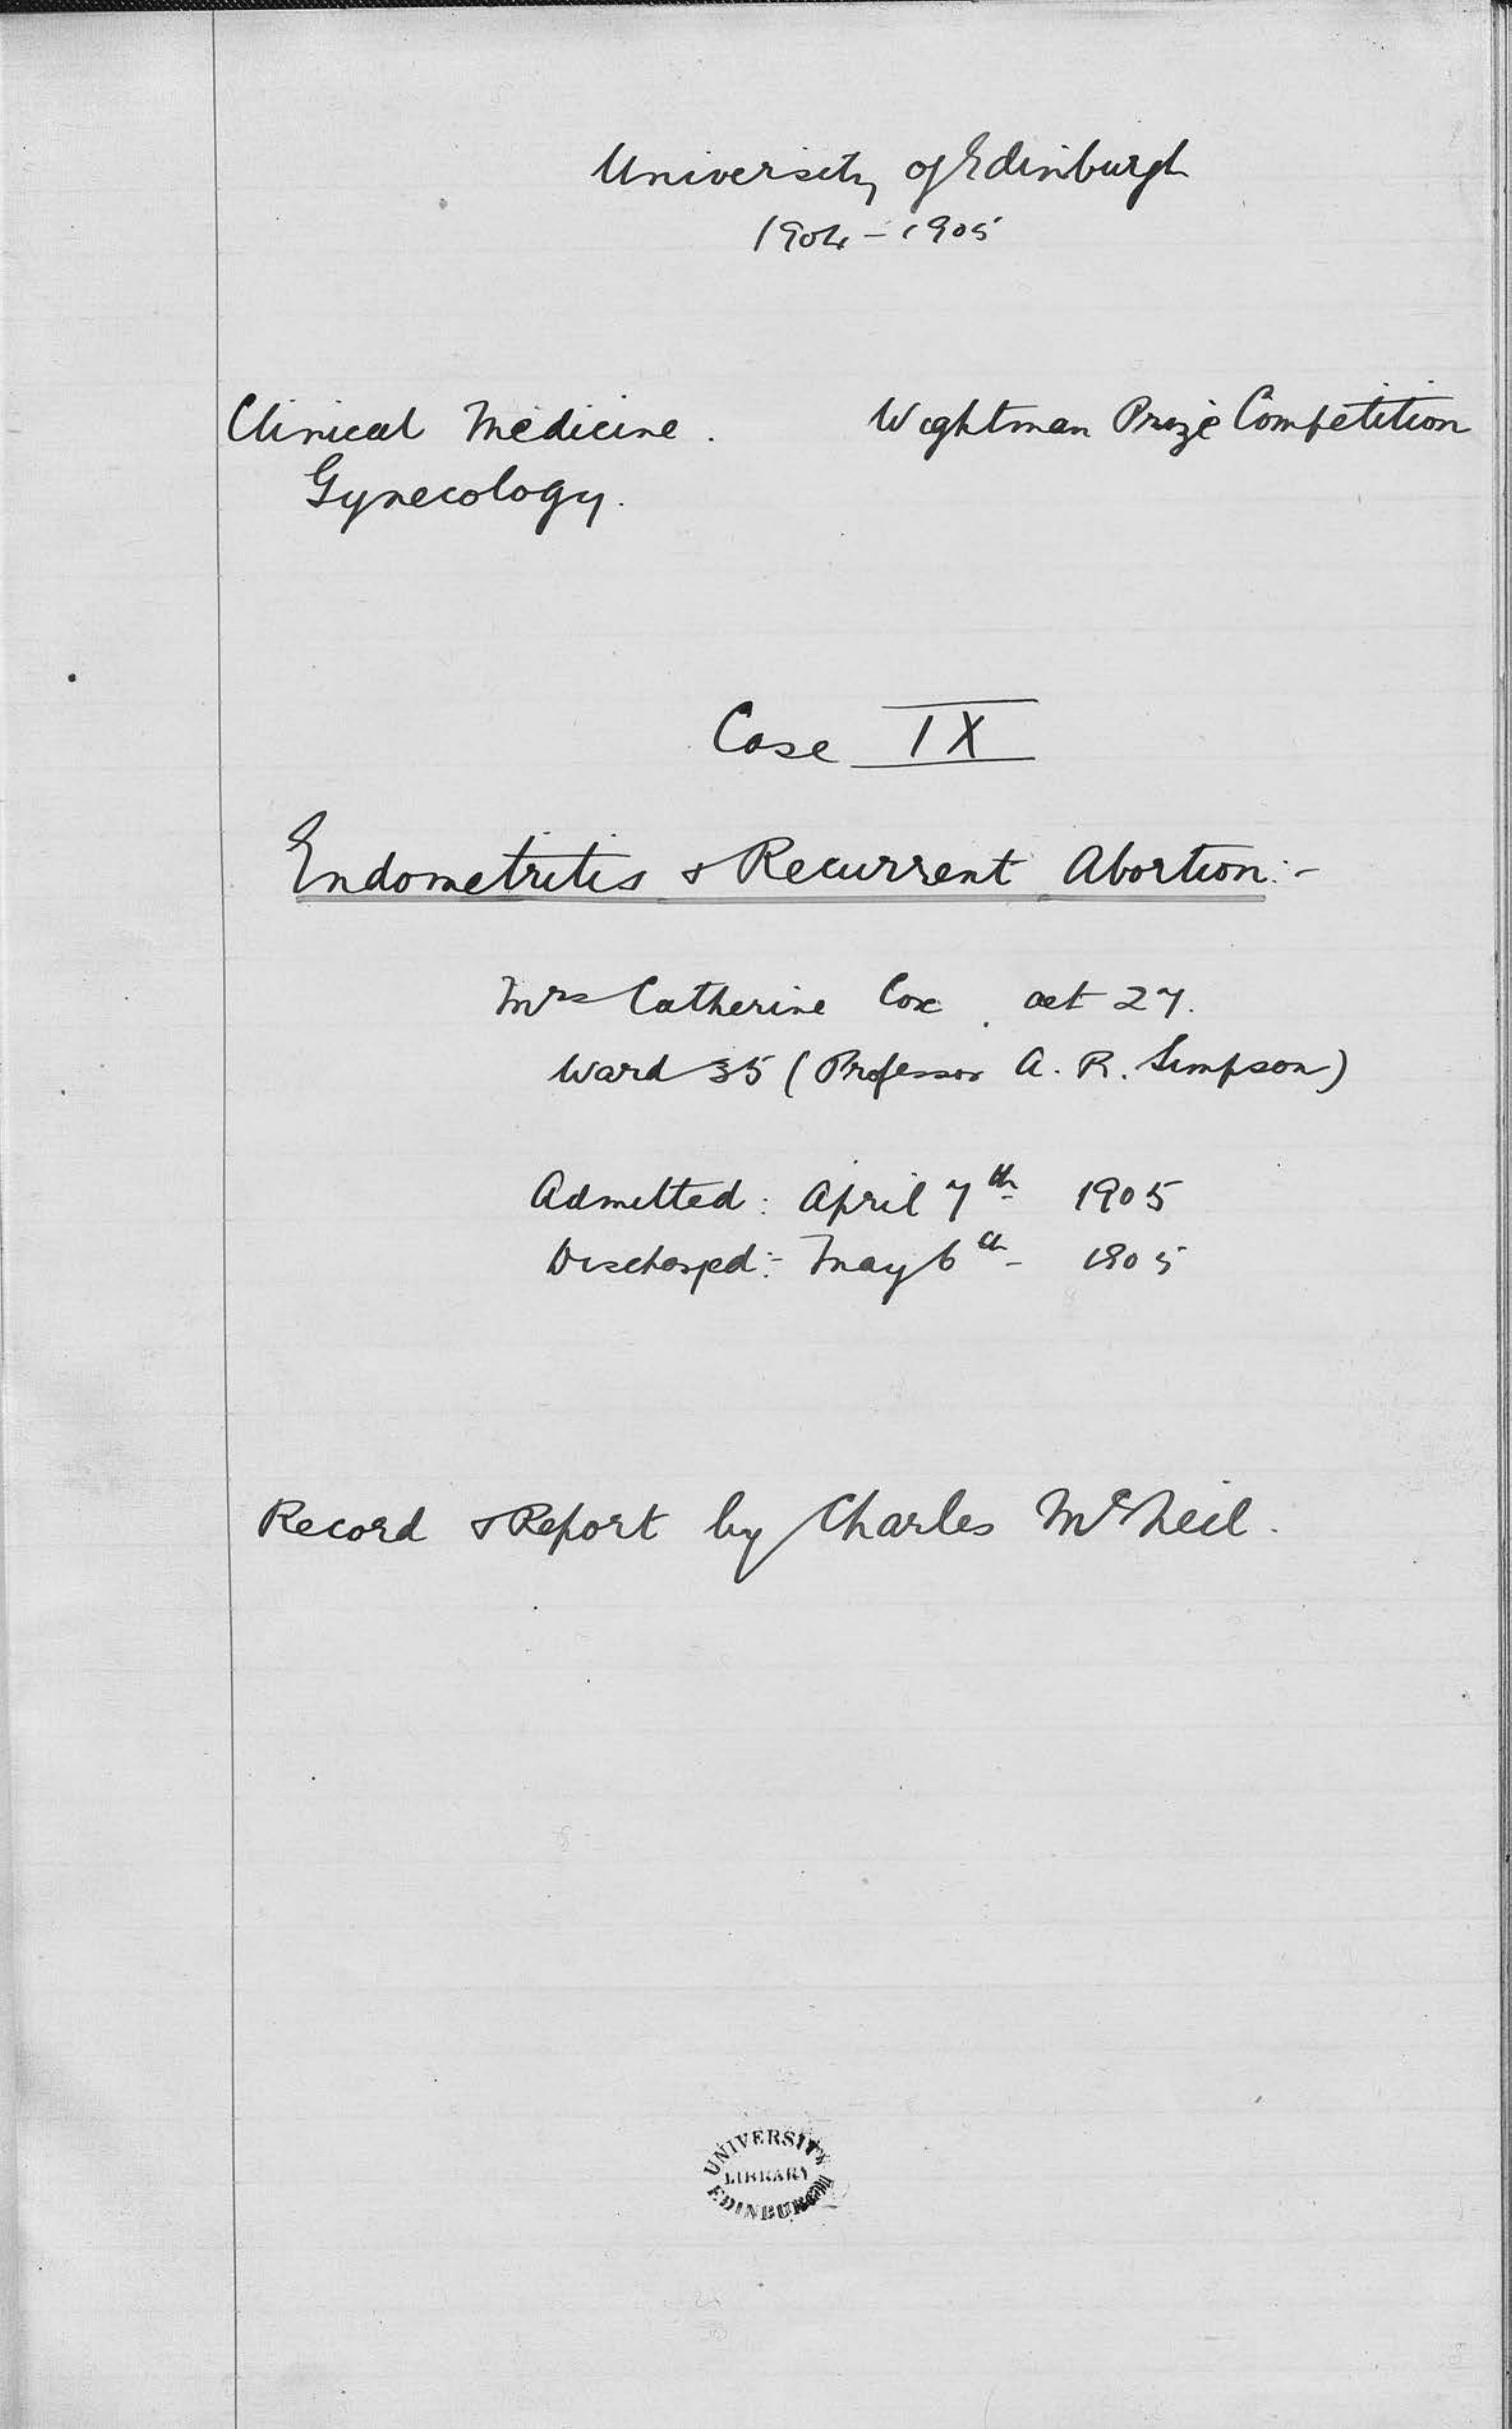 University of Edinburgh
1904-1905
Clinical Medicine. Wightman Prize Competition
Gynecology.
Case IX
Endometritis & Recurrent Abortion:-
Mrs Catherine Cox. aet 27.
Ward 35 (Professor A. R. Simpson)
Admitted: April 7th 1905
Discharged:- May 6th - 1905
Record & Report by Charles McNeil.
UNIVERSITY
LIBRARY
EDINBURGH